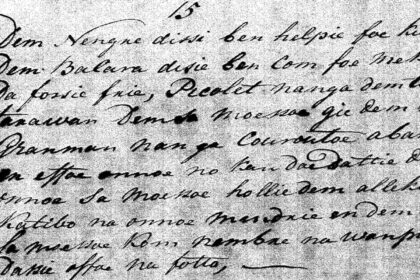 15
Dem Nengre dissi ben helpie foe
Dem Balara disie ben Com foe
Da fossie frie, Picolet nanga dem
Dem sa moessoe gie dem
Granman nanga Couroutoe aba
en effoe onnoe no kan
onnoe sa moessoe hollie dem allek
Katibo na onnoe mindrie en dem
sa moessoe kom nembre na wanpe
Dasie offoe na fotto,